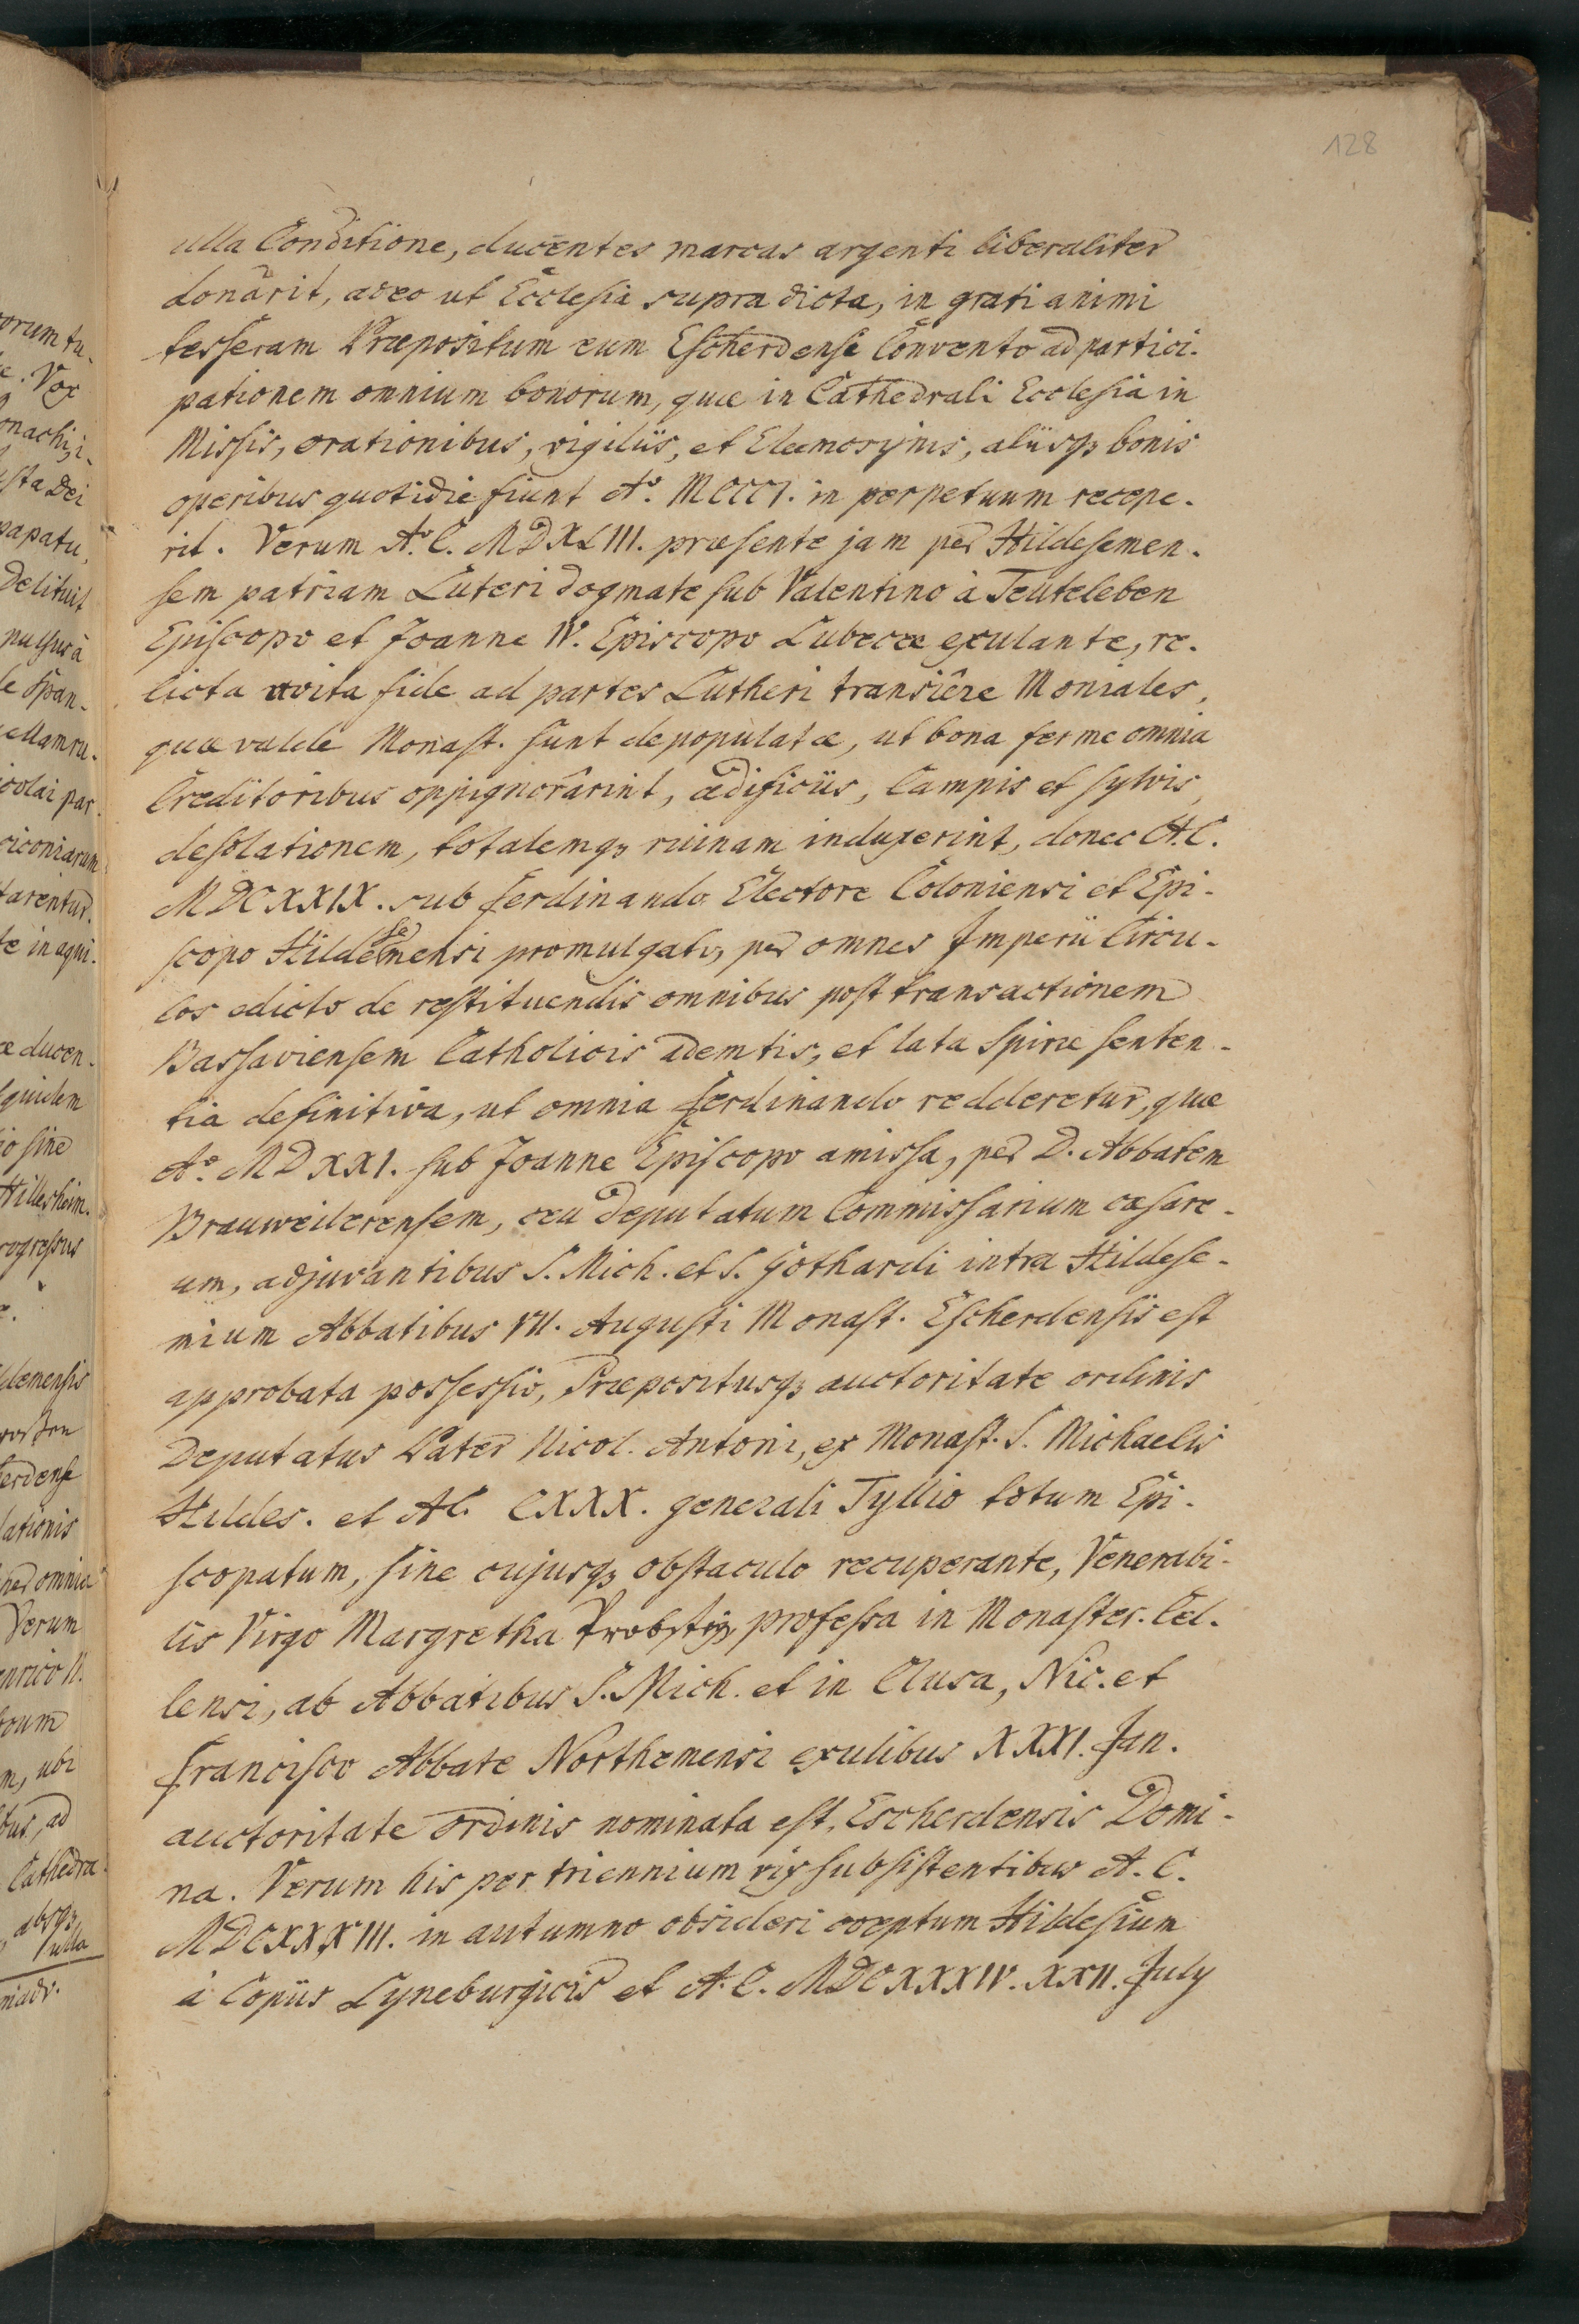 128
ulla Conditione, ducentes marcas argenti liberaliter
donârit, adeo ut Ecclesia supra dicta, in grati animi
tesseram Præpositum cum Escherdense Convento ad partici-
pationem omnium bonorum, quæ in Cathedrali Ecclesia in
Missis, orationibus, vigiliis, et Eleemosynis, aliisqȝ bonis
operibus quotidie fiunt Aº. MCCCI. in perpetuum recepe-
rit. Verum Aº. C. MDXLIII. præsente jam per Hildesemen-
sem patriam Luteri dogmate sub Valentino à Teuteleben
Episcopo et Joanne IV. Episcopo Lubecæ exulante, re-
licta avita fide ad partes Lutheri transiêre Moniales,
quæ valde Monast. sunt depopulatæ, ut bona ferme omnia
Creditoribus oppignorârint, ædificiis, Campis et sylvis,
desolationem, totalemqȝ ruinam induxerint, donec A. C.
MDCXXIX. sub Ferdinando Electore Coloniensi et Epi-
scopo Hildesemensi promulgato, per omnes Imperii Circu-
los edicto de restituendis omnibus post transactionem
Passaviensem Catholicis ademtis, et lata Spiræ senten-
tia definitiva, ut omnia Ferdinando redderetur, quæ
Aº. MDXXI. sub Joanne Episcopo amissa, per D. Abbatem
Brauweilerensem, ceu Deputatum Commissarium cæsare-
um, adjuvantibus S. Mich. et S. Gothardi intra Hildese-
mium Abbatibus VII. Augusti Monast. Escherdensis est
approbata possessio, Præpositusqȝ auctoritate ordinis
Deputatus Pater Nicol. Antoni, ex Monast. S. Michaelis
Hildes. et AC. CXXX. generali Tyllio totum Epi-
scopatum, sine cujusqȝ obstaculo recuperante, Venerabi-
lis Virgo Margretha Probstin, professa in Monaster. Cel-
lensi, ab Abbatibus S. Mich. et in Clusa, Nic. et
Francisco Abbate Northemensi exulibus XXXI. Jan.
auctoritate ordinis nominata est, Escherdensis Domi-
na. Verum his per triennium vix subsistentibus A. C.
MDCXXXIII. in autumno obsideri coeptum Hildesium
à Copiis Lyneburgicis et A. C. MDCXXXIV. XXII. July